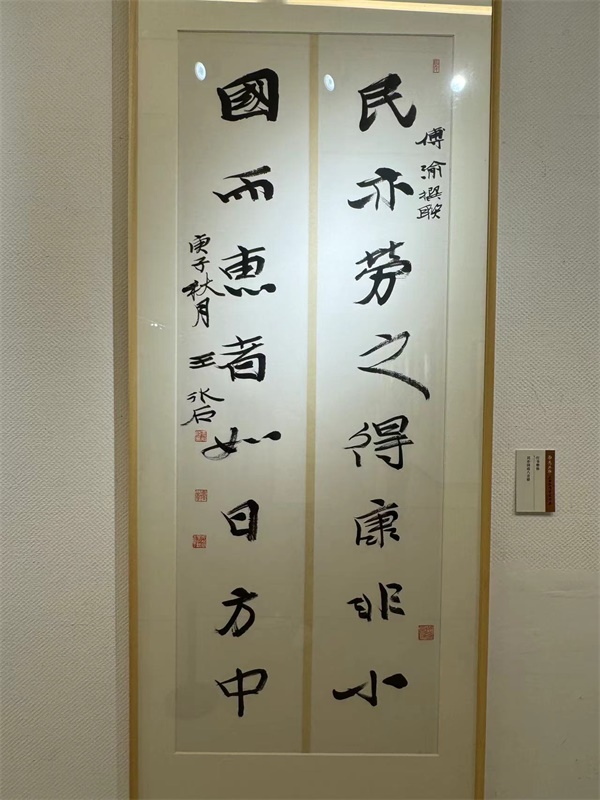 民亦劳之得康非小
傅渝撰联
國而惠者如日方中
庚子秋月 王冰石